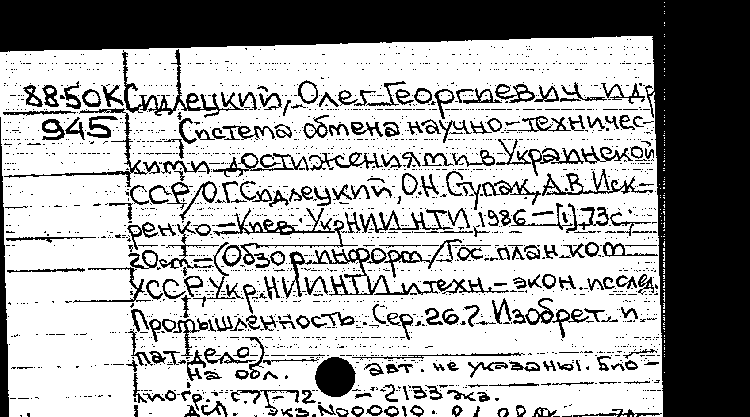 88-50К Сидлецкий, Олег Георгиевич и др
945 Система обмена научно-техничес-
кими достижениями в Украинской
ССР/О.Г.Сидлецкий, О.Н.Ступак, А.В.Иск-
ренко.-Киев: УкрНИИНТИ, 1986-[1],73с;
20см.-(Обзор.информ./Гос.план.ком
УССР, Укр.НИИНТИ и техн.-экон.исслед.
Промышленность. Сер.26.7. Изобрет. и
пат.дело).
На обл. авт. не указаны. Био-
лиогр.: с.71-72. - 2133 экз.
ДСП. Экз.№000010.